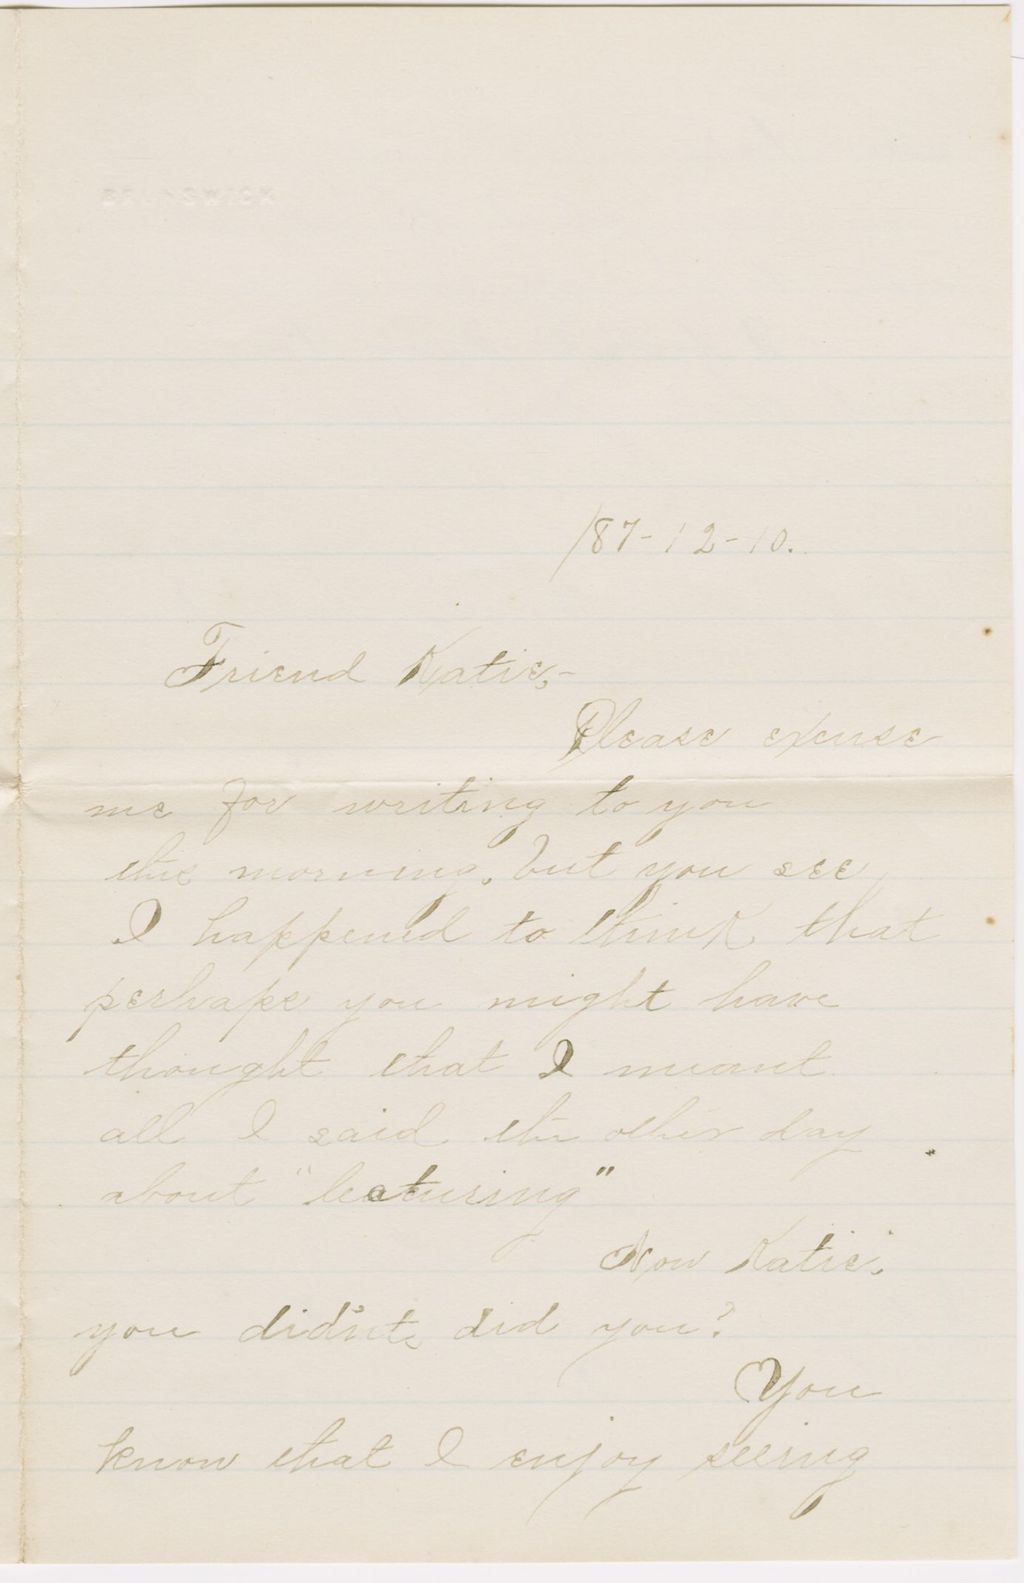 BRUNSWICK
187-12-10.
Friend Katie,-
Please excuse
me for writing to you
this morning, but you see
I happened to think that
perhaps you might have
thought that I meant
all I said the other day
about "lecturing"
Now Katie,
you didn't, did you?
You
know that I enjoy seeing